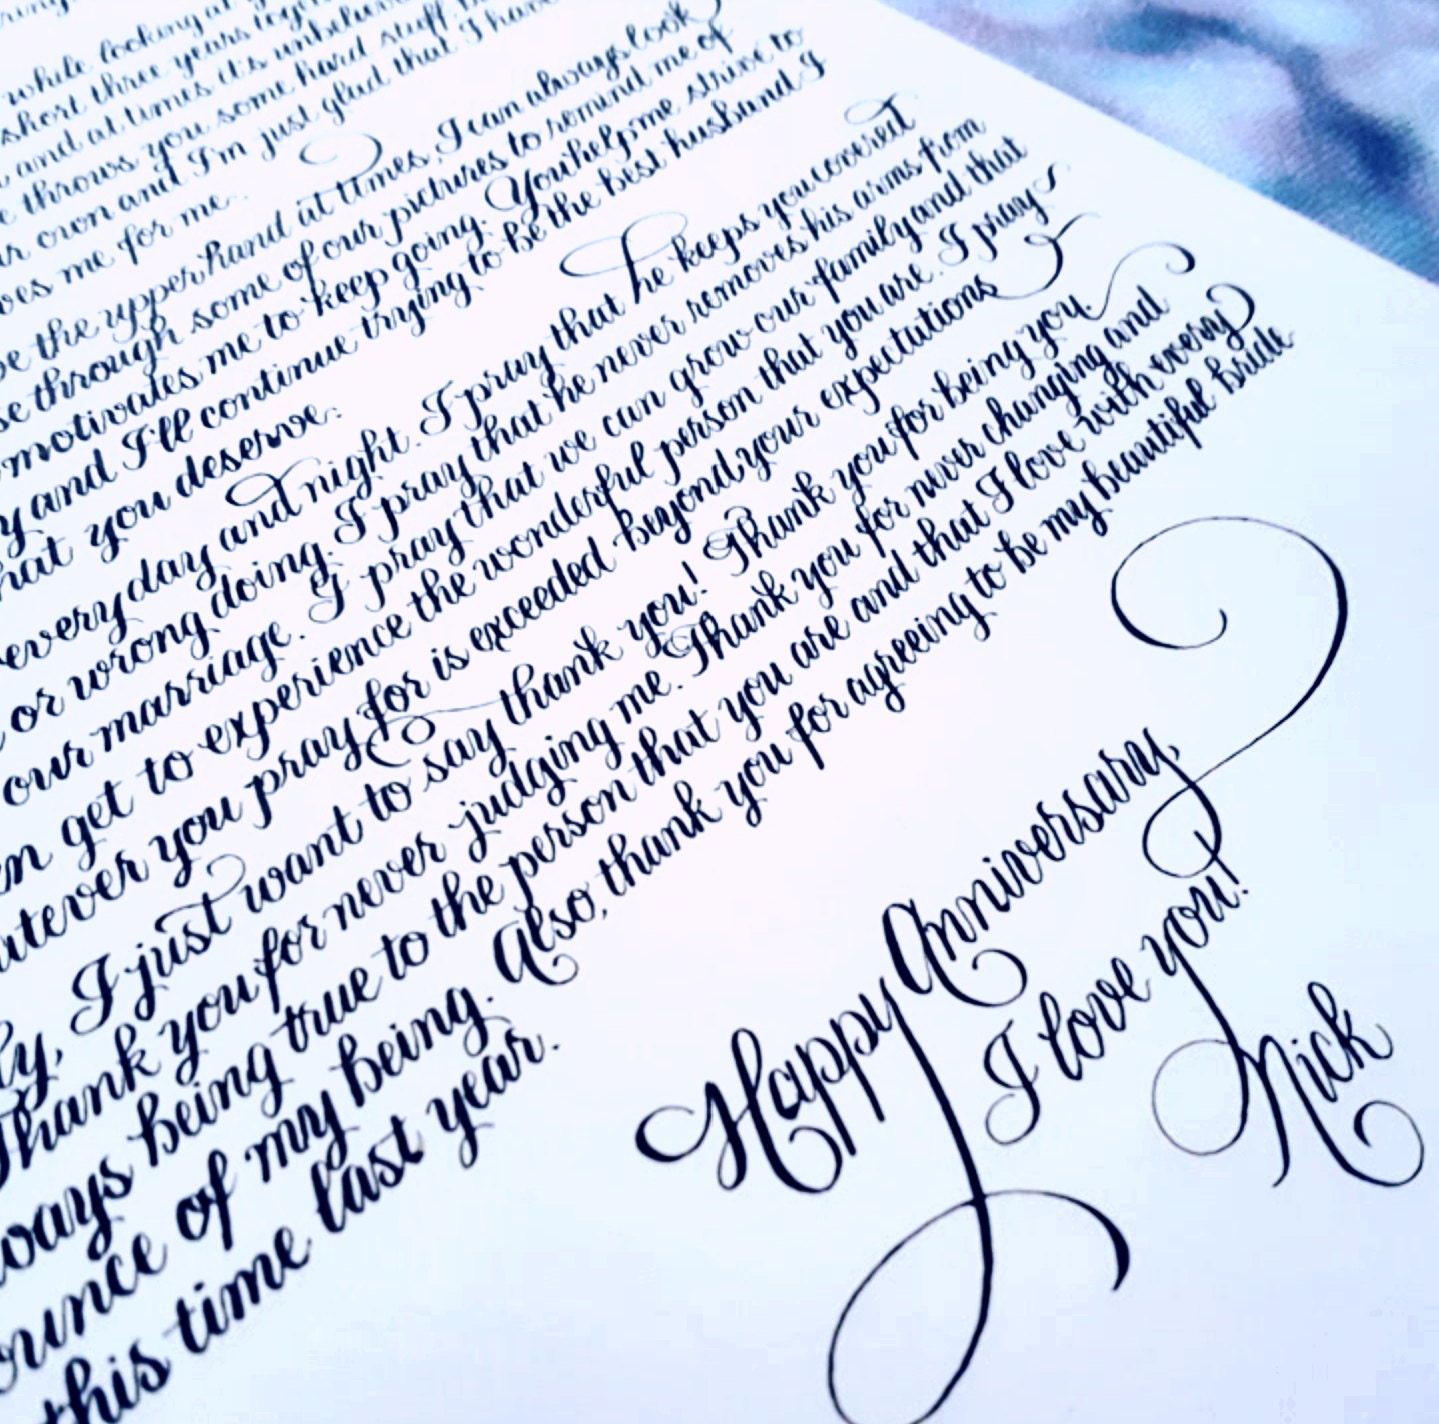 while looking at
short three years toge
and at times it's unbelie
throws you some hard stuff, b
own and I'm just glad that I have
me for me.
the upper hand at times, I can always look
through some of our pictures to remind me of
motivates me to keep going. You help me strive to
and I'll continue trying to be the best husband I
you deserve.
every day and night. I pray that he keeps you covered
or wrong doing. I pray that he never removes his arms from
our marriage. I pray that we can grow our family and that
get to experience the wonderful person that you are. I pray
you pray for is exceeded beyond your expectations
ly, I just want to say thank you! Thank you for being you.
Thank you for never judging me. Thank you for never changing and
ways being true to the person that you are and that I love with every
ounce of my being. Also, thank you for agreeing to be my beautiful bride
this time last year.
Happy Anniversary,
I love you!
Nick